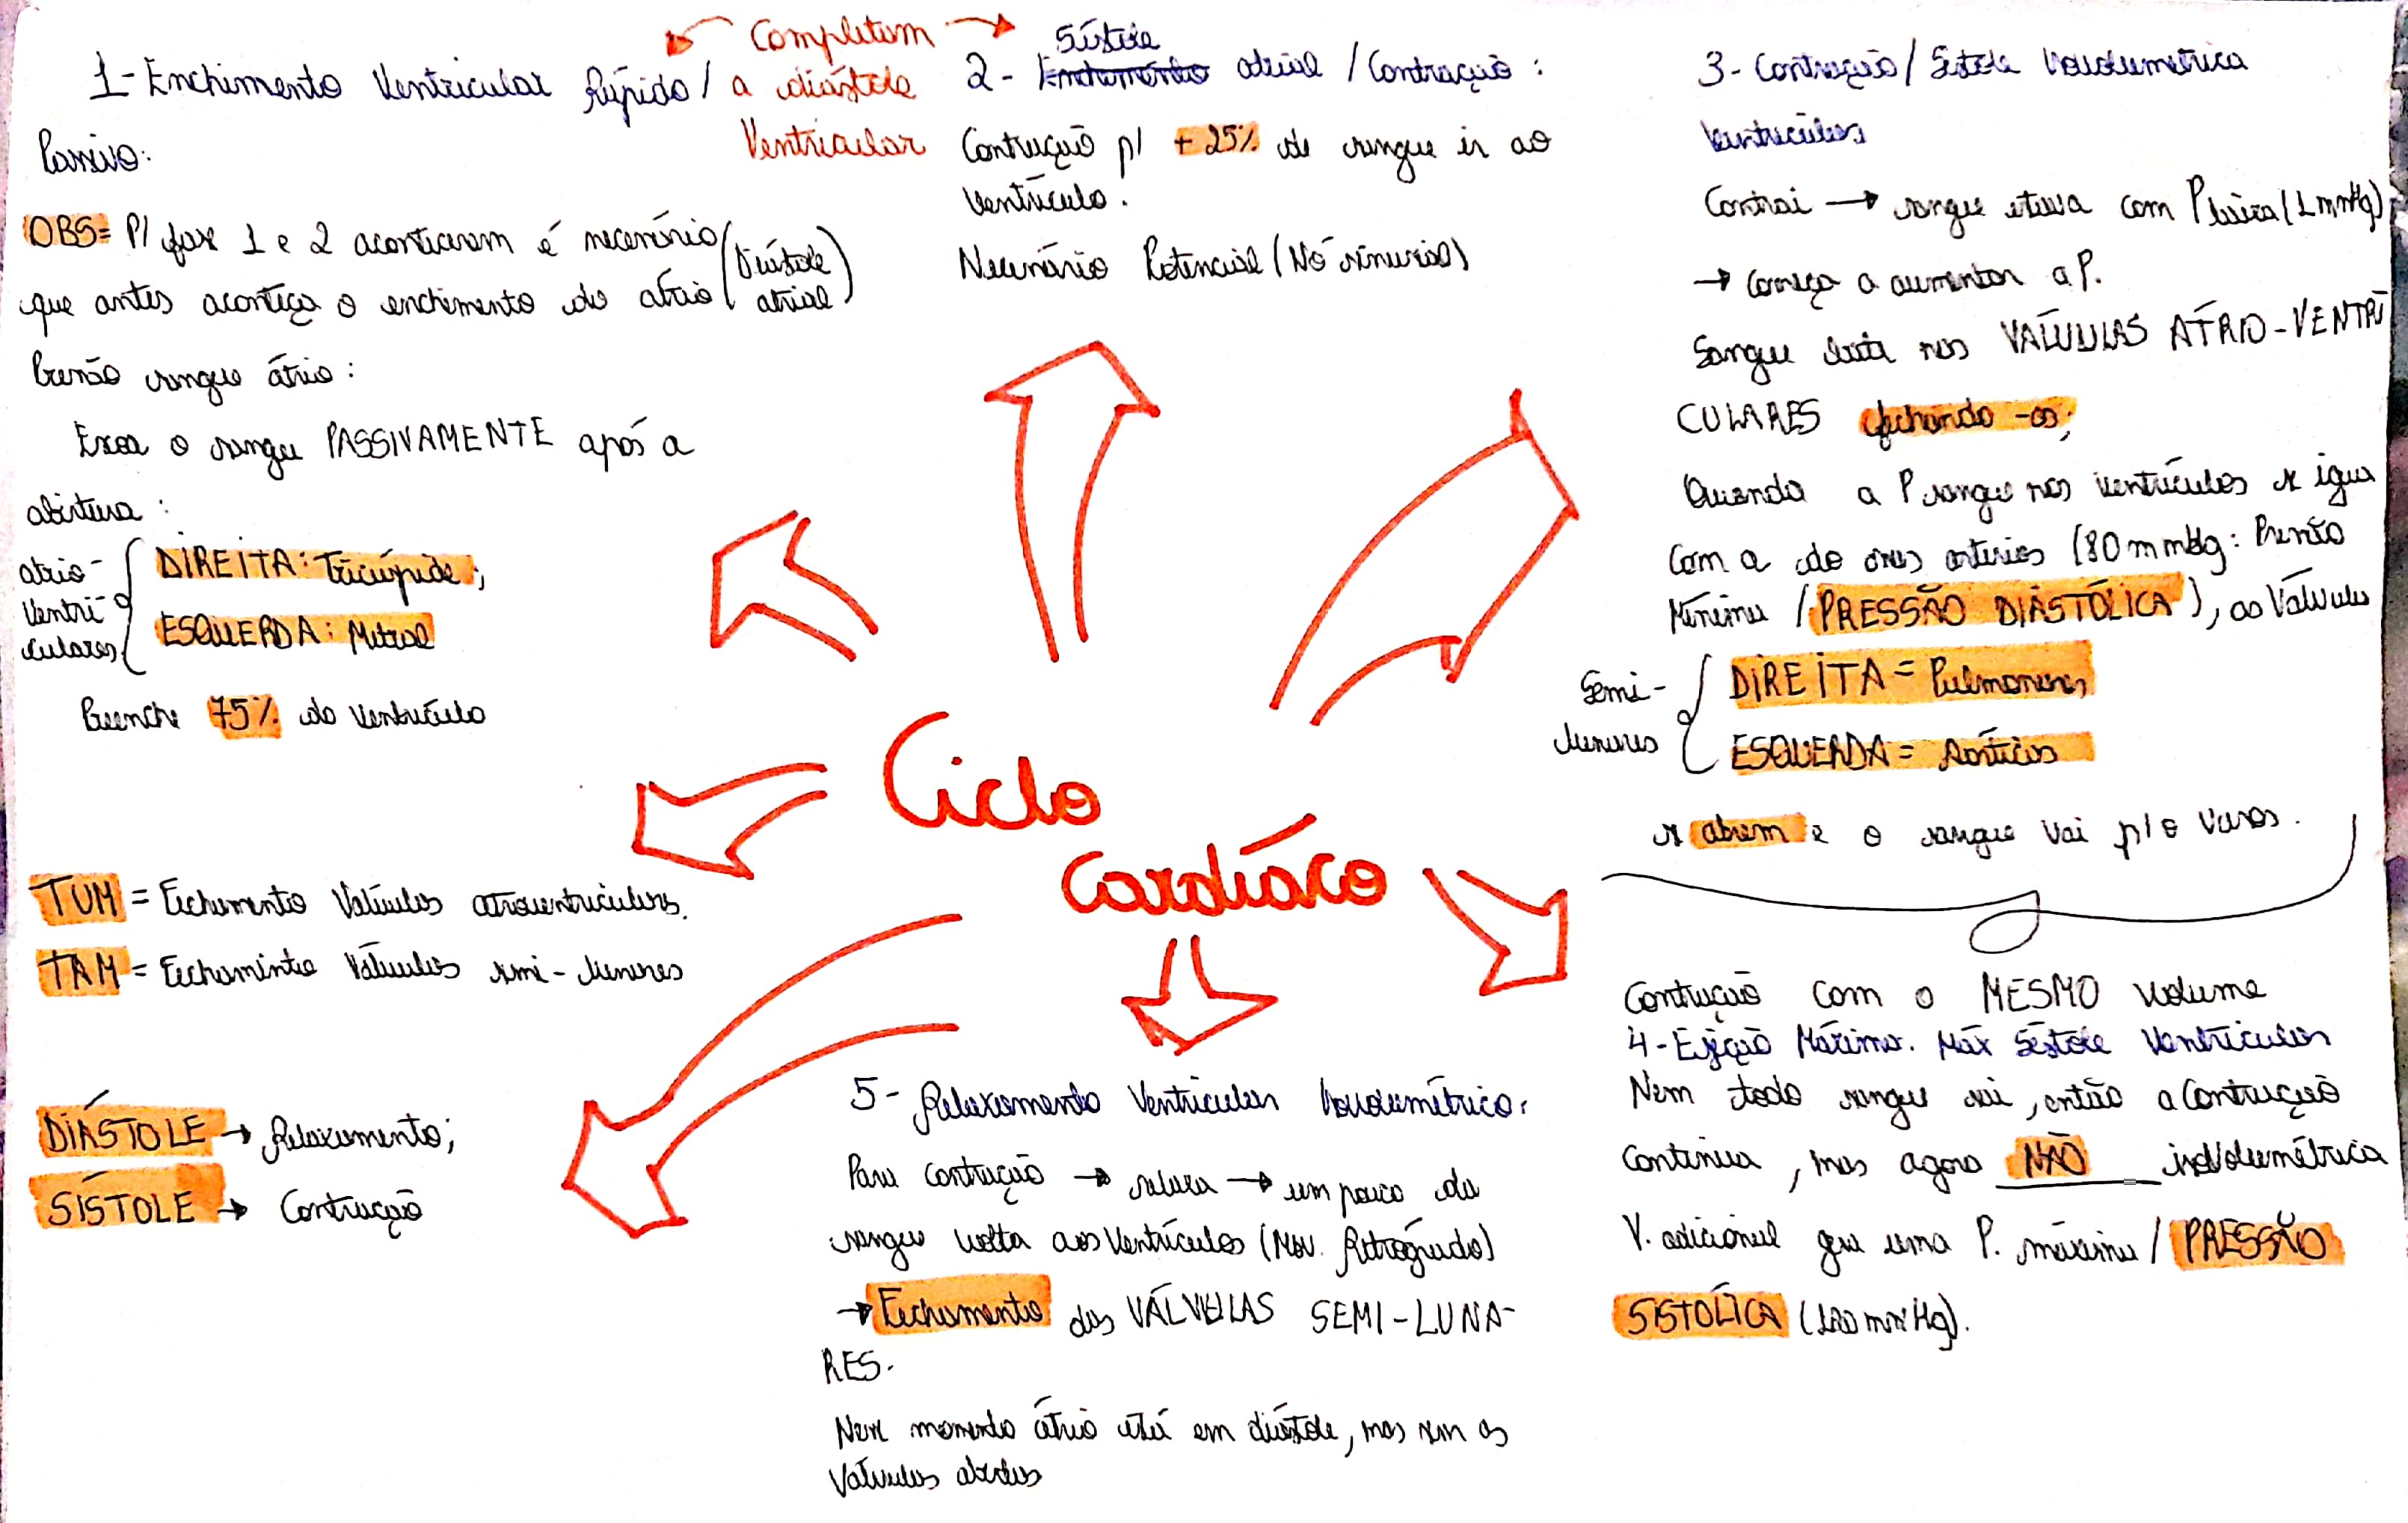 Completam
a diástole
Ventricular
1- Enchimento Ventricular Rápido/
Passivo:
OBS= P/ fase 1 e 2 acontecerem é necessário
que antes aconteça o enchimento do átrio (Diástole
atrial)
Pressão sangue átrio:
Escoa o sangue PASSIVAMENTE após a
abertura:
atrio-
Ventri
culares
DIREITA: Tricúspide;
ESQUERDA: Mitral
Preenche 75% do Ventrículo
2- Sístole Enchimento atrial / Contração:
Contração p/ + 25% de sangue ir ao
Ventrículo.
Necessário Potencial (Nó sinusial)
3- Contração/ Sístole Isovolumétrica
Ventricular
Contrai → sangue estava com P baixa (1 mmHg)
→ Começa a aumentar a P.
Sangue bate nas VÁLVULAS ATRIO-VENTRÍ
CULARES fechando-as;
Quando a P sangue nos ventrículos se iguala
Com a do nas artérias (80 mmHg: Pressão
Mínima / PRESSÃO DIASTÓLICA), as Válvulas
Semi-
lunares
DIREITA = Pulmonares
ESQUERDA = Aórticas
se abrem e o sangue vai p/ o Vasos.
Contração com o MESMO volume
4- Ejeção Máxima. Máx Sístole Ventricular
Nem todo sangue sai, então a Contração
Continua, mas agora NÃO isoVolumétrica
V. adicional gera uma P. máxima / PRESSÃO
SISTÓLICA (120 mmHg).
5- Relaxamento Ventricular Isovolumétrico.
Para contração → relaxa → um pouco do
sangue volta aos Ventrículos (Mov. Retrógrado)
→ Fechamento das VÁLVULAS SEMI-LUNA-
RES.
Nesse momento átrio está em diástole, mas sem as
Válvulas abertas
Ciclo
Cardíaco
TUM = Fechamento Válvulas atrioventriculares.
TAM = Fechamento Válvulas semi-lunares
DIÁSTOLE → Relaxamento;
SÍSTOLE → Contração